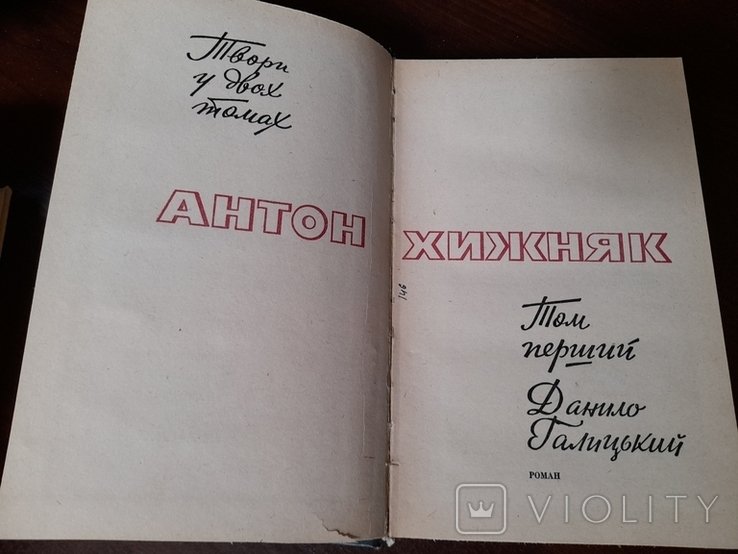 Твори
у двох
томах
АНТОН ХИЖНЯК
146
Том
перший
Данило
Галицький
РОМАН
VIOLITY